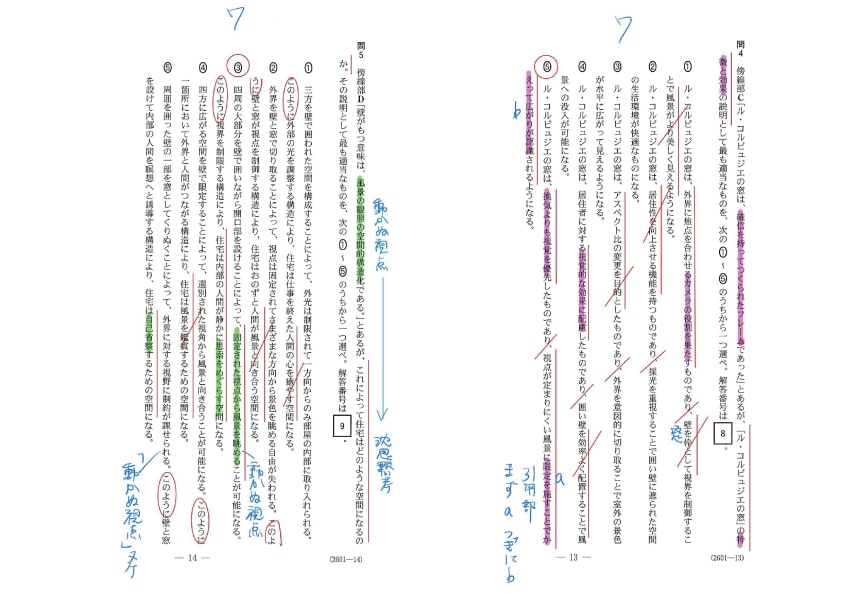 ワ
問4 傍線部C「ル・コルビュジエの窓は、確信を持ってつくられたフレームであった」とあるが、「ル・コルビュジエの窓」の特
徴と効果の説明として最も適当なものを、次の①～⑤のうちから一つ選べ。解答番号は 8 。
① ル・コルビュジエの窓は、外界に焦点を合わせるカメラの役割を果たすものであり、壁を枠として視界を制御するこ
とで風景がより美しく見えるようになる。
② ル・コルビュジエの窓は、居住性を向上させる機能を持つものであり、採光を重視することで囲い壁に遮られた空間
の生活環境が快適なものになる。
③ ル・コルビュジエの窓は、アスペクト比の変更を目的としたものであり、外界を意図的に切り取ることで室外の景色
が水平に広がって見えるようになる。
④ ル・コルビュジエの窓は、居住者に対する視覚的な効果に配慮したものであり、囲い壁を効率よく配置することで風
景への没入が可能になる。
⑤ ル・コルビュジエの窓は、換気よりも視覚を優先したものであり、視点が定まりにくい風景に限定を施すことでか
えって広がりが認識されるようになる。
窓
a
b
引用部
まずa つぎにb
— 13 —
(2601—13)
ワ
問5 傍線部D「壁がもつ意味は、風景の観照の空間的構造化である。」とあるが、これによって住宅はどのような空間になるの
か。その説明として最も適当なものを、次の①～⑤のうちから一つ選べ。解答番号は 9 。
① 三方を壁で囲われた空間を構成することによって、外光は制限されて一方向からのみ部屋の内部に取り入れられる。
このように外部の光を調整する構造により、住宅は仕事を終えた人間の心を癒やす空間になる。
② 外界を壁と窓で切り取ることによって、視点は固定されてさまざまな方向から景色を眺める自由が失われる。このよ
うに壁と窓が視点を制御する構造により、住宅はおのずと人間が風景と向き合う空間になる。
③ 四周の大部分を壁で囲いながら開口部を設けることによって、固定された視点から風景を眺めることが可能になる。
このように視界を制限する構造により、住宅は内部の人間が静かに思索をめぐらす空間になる。
④ 四方に広がる空間を壁で限定することによって、選別された視角から風景と向き合うことが可能になる。このように
一箇所において外界と人間がつながる構造により、住宅は風景を鑑賞するための空間になる。
⑤ 周囲を囲った壁の一部を窓としてくりぬくことによって、外界に対する視野に制約が課せられる。このように壁と窓
を設けて内部の人間を瞑想へと誘導する構造により、住宅は自己省察するための空間になる。
動かぬ視点
沈思黙考
動かぬ視点
「動かぬ視点」ヌケ
— 14 —
(2601—14)